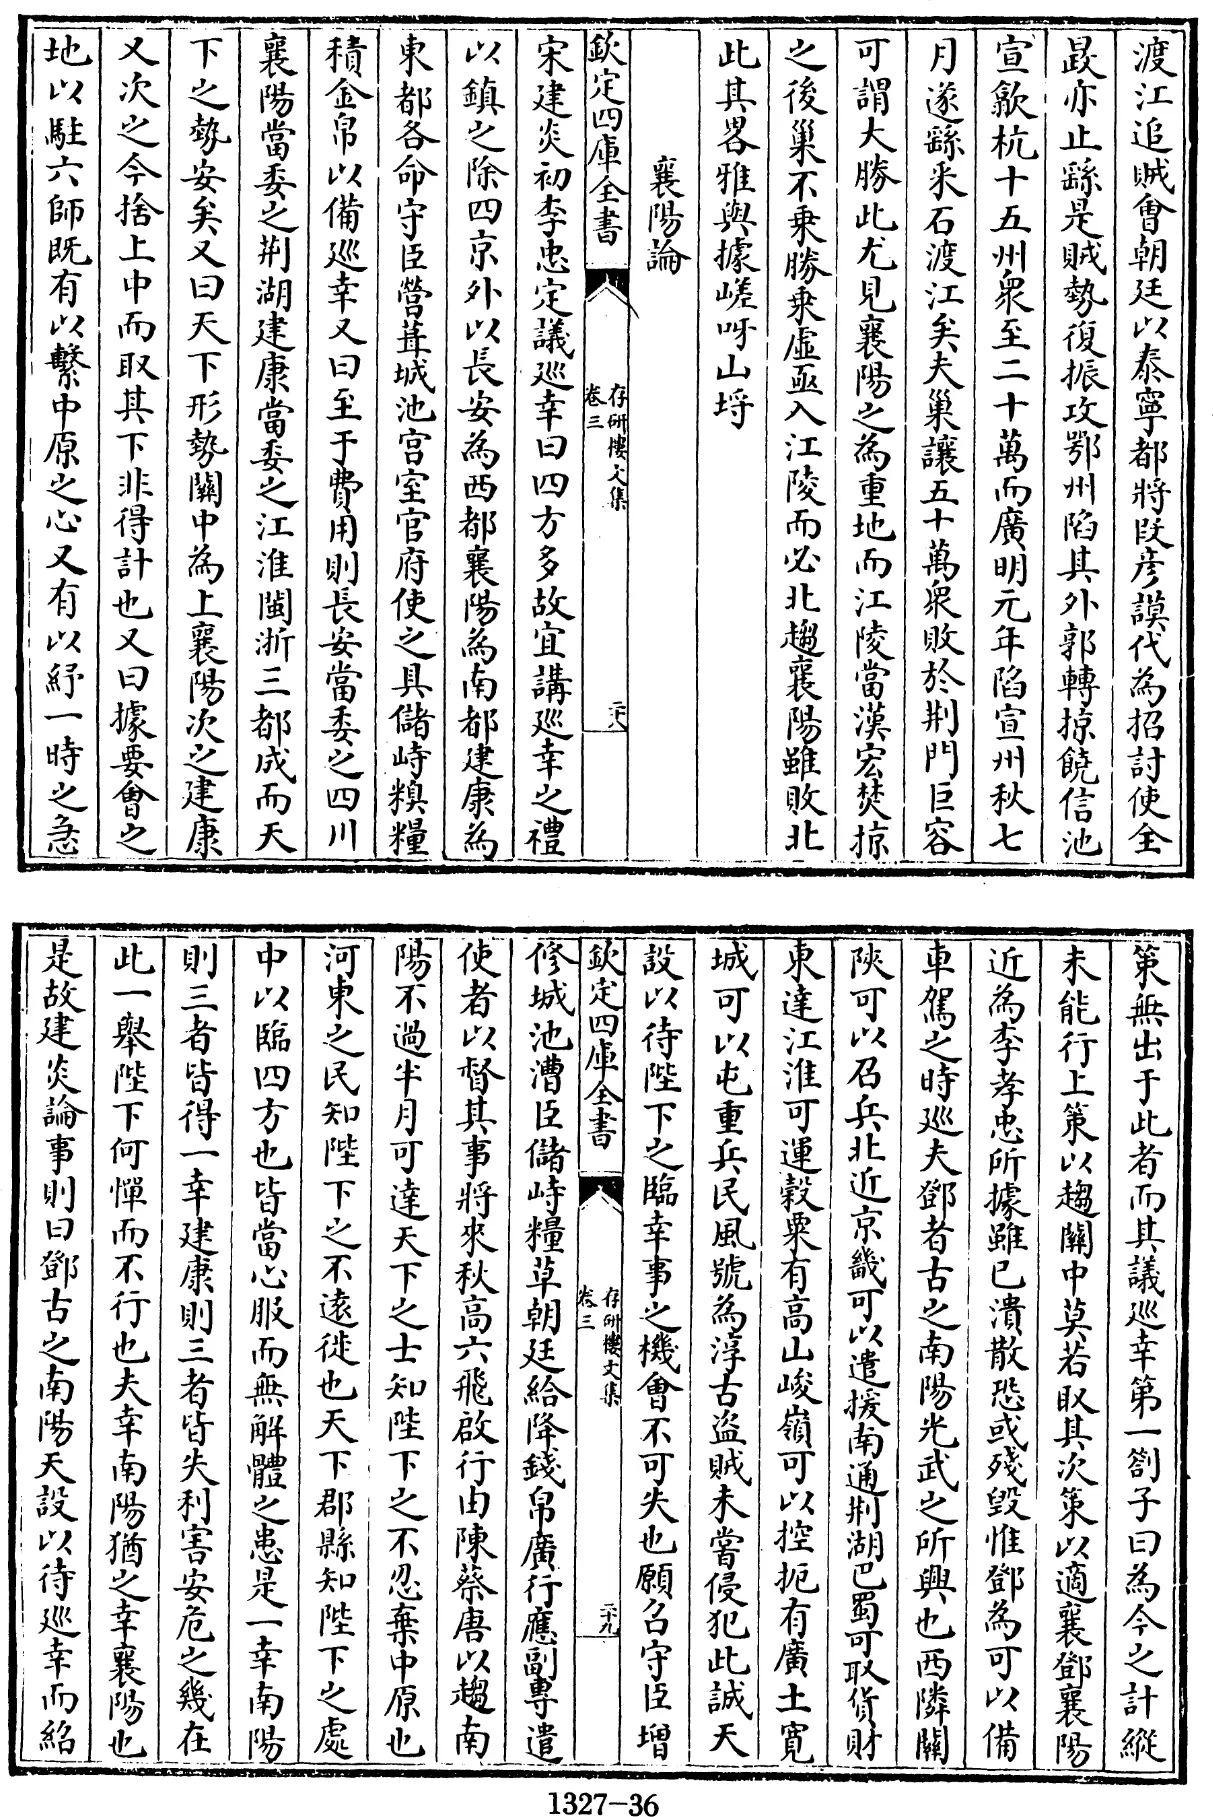 渡江追賊會朝廷以泰寧都將段彦謨代為招討使全
晸亦止繇是賊勢復振攻鄂州陷其外郭轉掠饒信池
宣歙杭十五州衆至二十萬而廣明元年陷宣州秋七
月遂繇采石渡江矣夫巢讓五十萬衆敗於荆門巨容
可謂大勝此尤見襄陽之為重地而江陵當漢宏焚掠
之後巢不乗勝乗虛亟入江陵而必北趨襄陽雖敗北
此其畧雅與據嵯呀山埒
襄陽論
欽定四庫全書
存研樓文集
卷三
二十八
宋建炎初李忠定議巡幸曰四方多故宜講巡幸之禮
以鎮之除四京外以長安為西都襄陽為南都建康為
東都各命守臣營葺城池宫室官府使之具儲峙糗糧
積金帛以備巡幸又曰至于費用則長安當委之四川
襄陽當委之荆湖建康當委之江淮閩浙三都成而天
下之勢安矣又曰天下形勢關中為上襄陽次之建康
又次之今捨上中而取其下非得計也又曰據要會之
地以駐六師既有以繫中原之心又有以紓一時之急
策無出于此者而其議巡幸第一劄子曰為今之計縱
未能行上策以趨關中莫若取其次策以適襄鄧襄陽
近為李孝忠所據雖已潰散恐或殘毀惟鄧為可以備
車駕之時巡夫鄧者古之南陽光武之所興也西隣關
陜可以召兵北近京畿可以遣援南通荆湖巴蜀可取貨財
東達江淮可運穀粟有高山峻嶺可以控扼有廣土寛
城可以屯重兵民風號為淳古盗賊未嘗侵犯此誠天
設以待陛下之臨幸事之機會不可失也願召守臣增
欽定四庫全書
存研樓文集
卷三
二十九
修城池漕臣儲峙糧草朝廷給降錢帛廣行應副專遣
使者以督其事將來秋高六飛啟行由陳蔡唐以趨南
陽不過半月可達天下之士知陛下之不忍棄中原也
河東之民知陛下之不遠徙也天下郡縣知陛下之處
中以臨四方也皆當心服而無解體之患是一幸南陽
則三者皆得一幸建康則三者皆失利害安危之幾在
此一舉陛下何憚而不行也夫幸南陽猶之幸襄陽也
是故建炎論事則曰鄧古之南陽天設以待巡幸而紹
1327-36